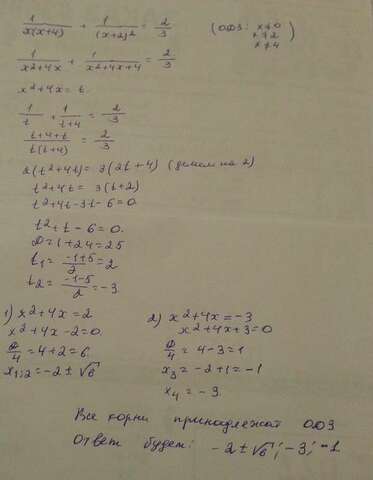 1/x(x+4) + 1/(x+2)² = 2/3 (ОДЗ: x≠0
x≠2
x≠4)
1/x²+4x + 1/x²+4x+4 = 2/3
x²+4x = t.
1/t + 1/t+4 = 2/3
t+4+t/t(t+4) = 2/3
2(t²+4t) = 3(2t+4) (делем на 2)
t²+4t = 3(t+2)
t²+4t-3t-6=0.
t²+t-6=0.
D=1+24=25
t₁ = -1+5/2 = 2
t₂ = -1-5/2 = -3
1) x²+4x=2
x²+4x-2=0.
D/4=4+2=6.
x₁;₂=-2±√6
2) x²+4x=-3
x²+4x+3=0
D/4=4-3=1
x₃=-2+1=-1
x₄=-3.
Все корни принадлежат ОДЗ
Ответ будет: -2±√6; -3; -1